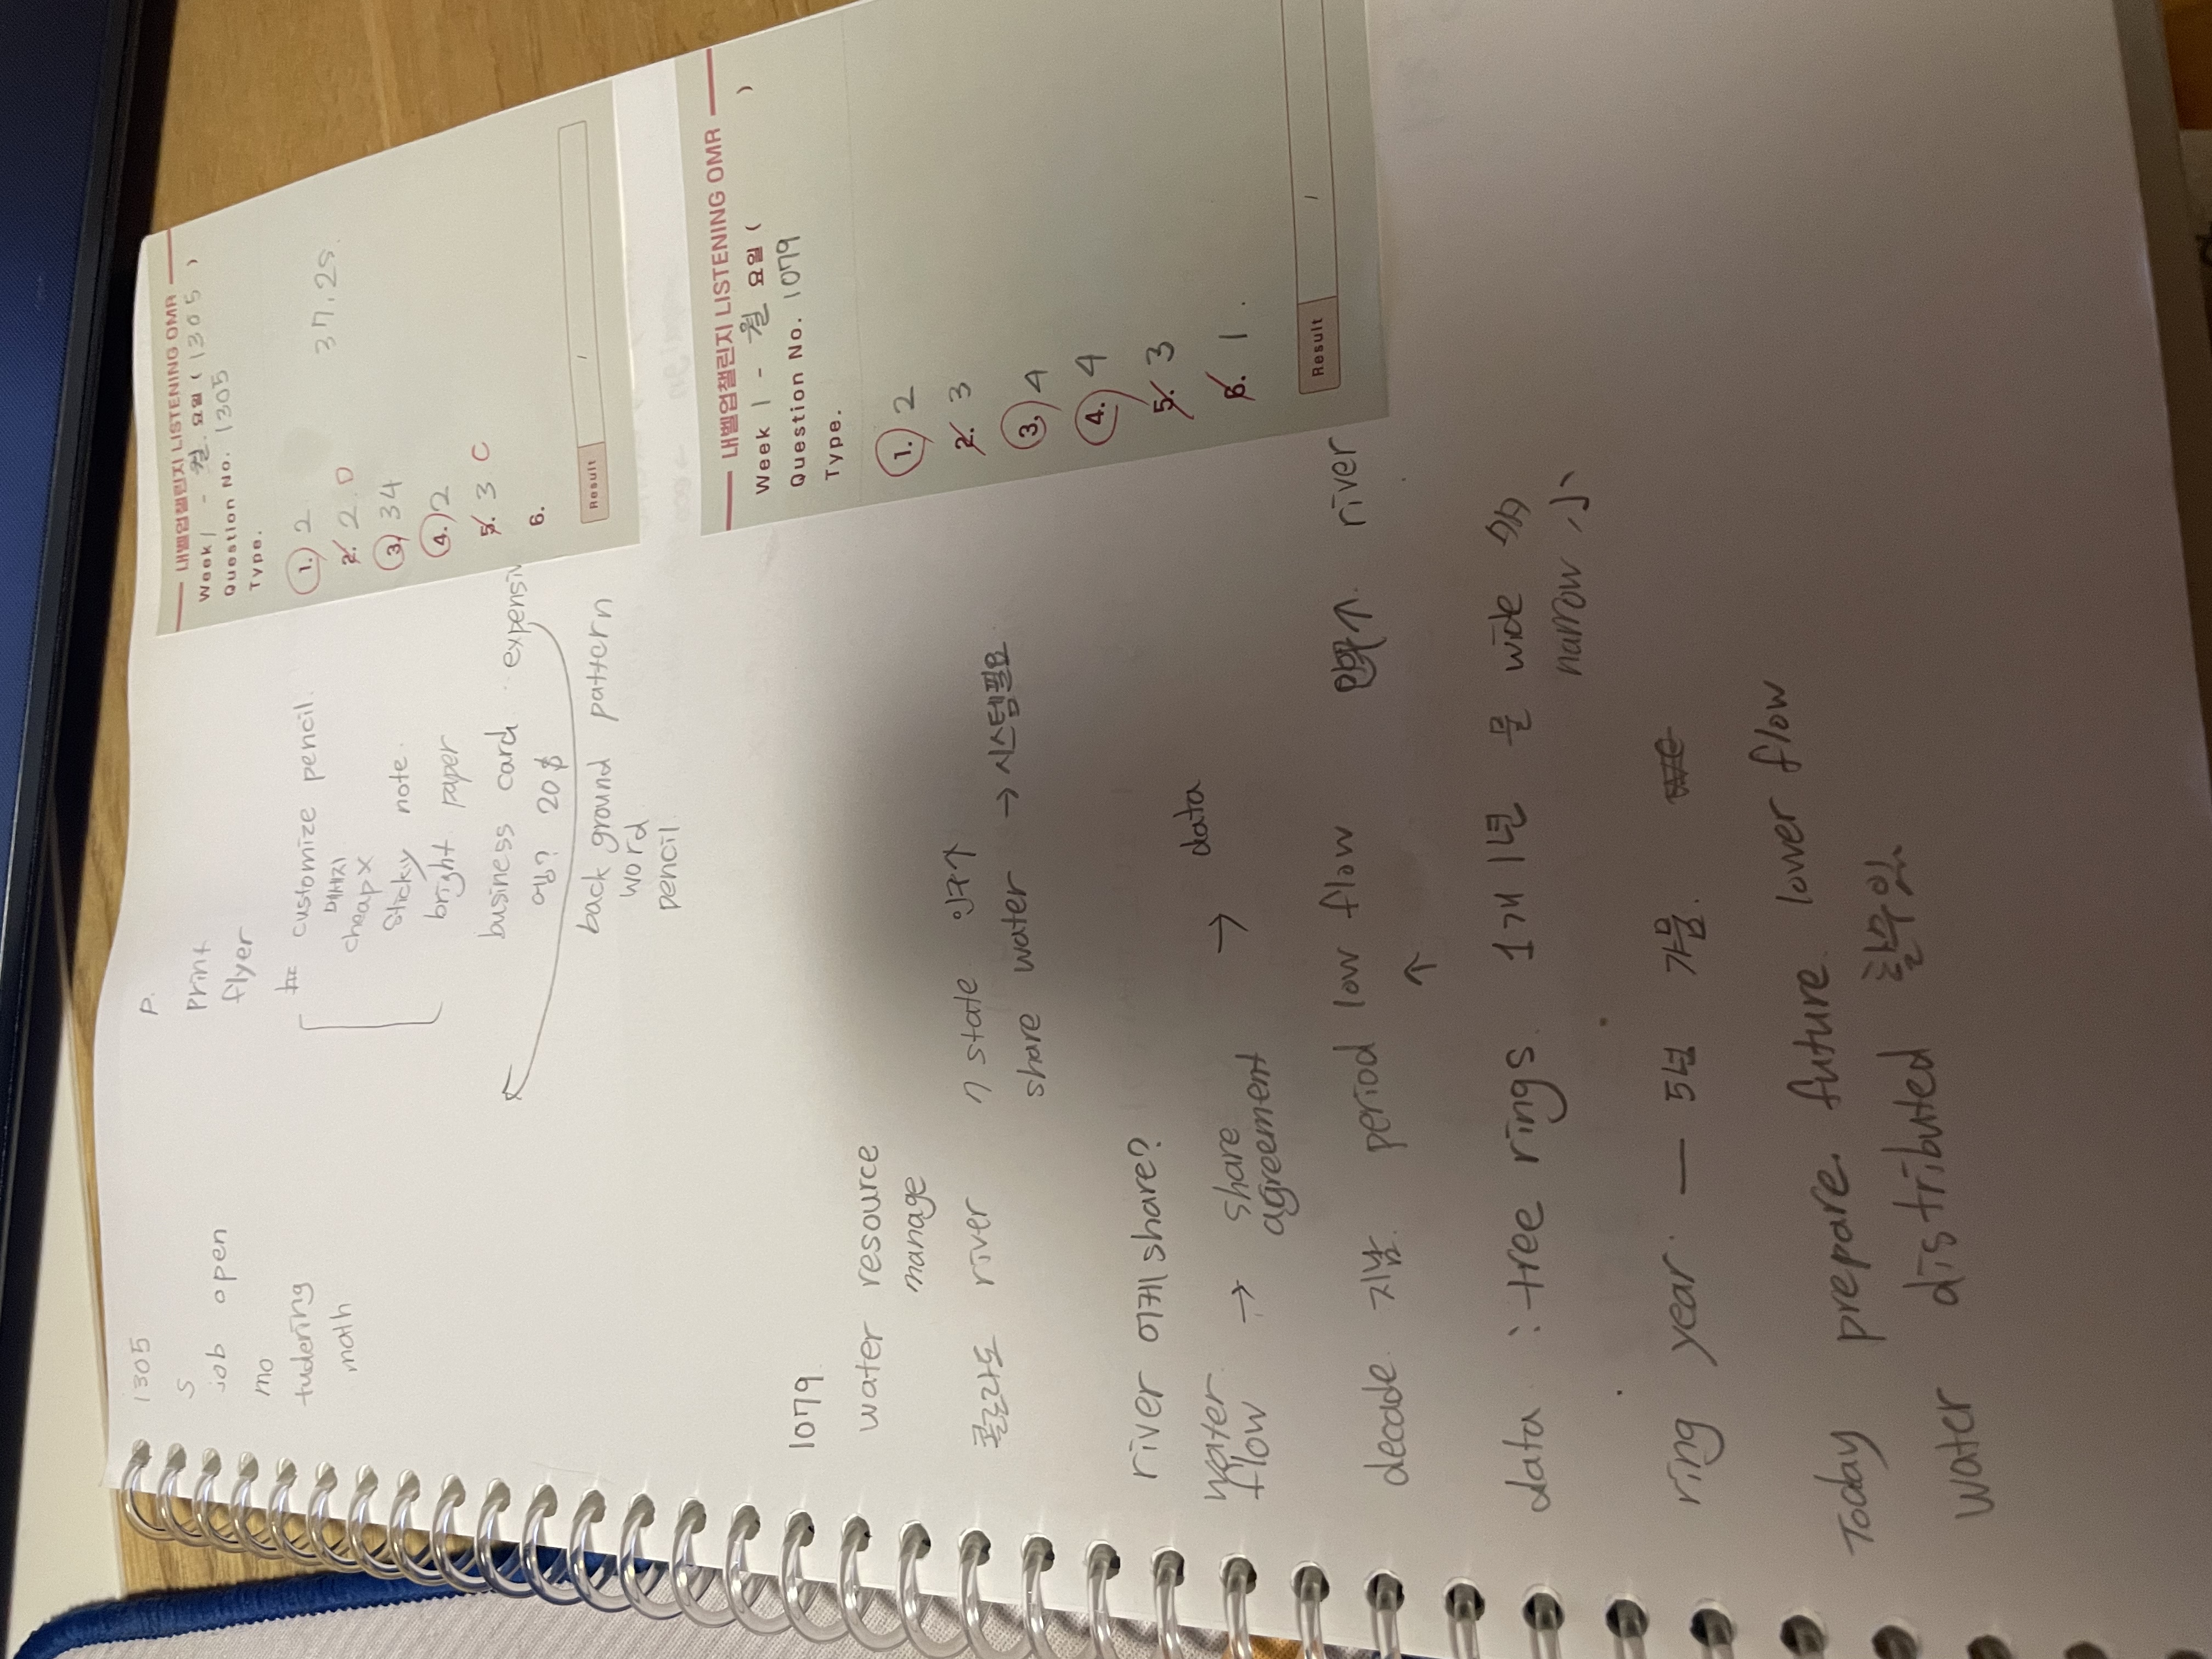 1305
S
job open
mo
tudering
math
P.
print
flyer
customize pencil.
메세지
cheap X
sticky note.
bright paper
business card.. expensiv
얼? 20$
back ground pattern
word
pencil.
내벨업챌린지 LISTENING OMR
Week 1 - 월.요일 ( 1305 )
Question No. 1305
Type.
37.2s.
1. 2
2. 2. D
3. 34
4. 2
5. 3 C
6.
Result /
1079.
water resource
manage
콜로라도 river 7 state 인구↑
share water → 시스템필요
river 어케 share?
water flow → share agreement → data
decade 지남. period low flow ↑ river
↑
data : tree rings. 1개 1년 물 wide 多
narrow 小
ring year. — 5년 가뭄.
Today prepare. future. lower flow
water distributed 할수있
내벨업챌린지 LISTENING OMR
Week 1 - 월 요일 ( )
Question No. 1079
Type.
1. 2
2. 3
3. 4
4. 4
5. 3
6. 1.
Result /